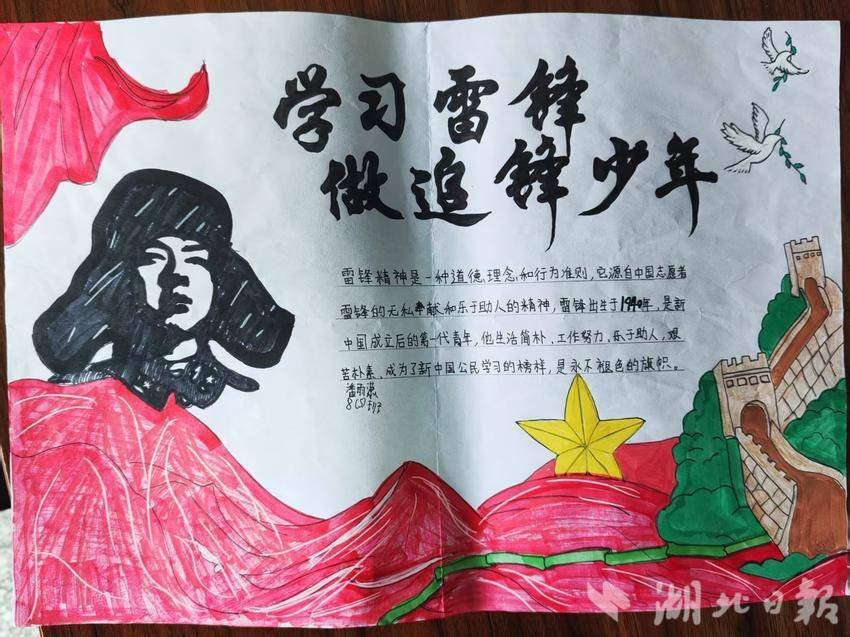 学习雷锋
做追锋少年
雷锋精神是一种道德理念和行为准则,它源自中国志愿者
雷锋的无私奉献和乐于助人的精神,雷锋出生于1940年,是新
中国成立后的第一代青年,他生活简朴、工作努力、乐于助人,艰
苦朴素、成为了新中国公民学习的榜样,是永不褪色的旗帜。
潘雨
8(5)班
湖北日报